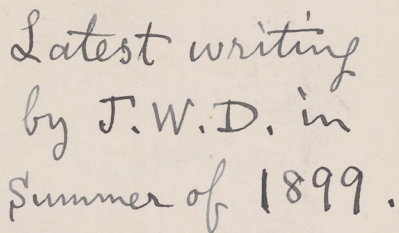 Latest writing
by J.W.D. in
Summer of 1899.